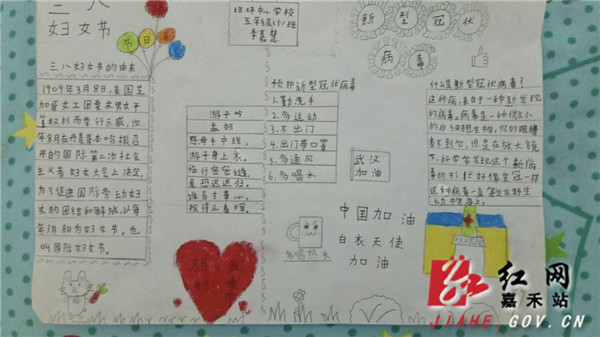 三八
妇女节
节日
三八妇女节的由来
1909年3月8日,美国芝
加哥女工因要求男女平
等权利而举行示威,次
年8月在丹麦哥本哈根召
开的国际第二次社会
主义者妇女大会上决定,
为了促进国际劳动妇
女的团结和解放,以每
年3月8和为妇女节。也
叫国际妇女节。
游子吟
孟郊
慈母手中线,
游子身上衣。
临行密密缝,
意恐迟迟归。
谁言寸草心,
报得三春晖。
中心学校
李嘉慧
预护新型冠状病毒
1.勤洗手
2.多运动
3.不出门
4.出门带口罩
5.多通风
6.多喝水
多喝热水
武汉
加油
中国加油
白衣天使
加油
新型冠状
病毒
什么是新型冠状病毒?
这种病,来自一种新发现
的病毒。病毒是一种很微小
的非细胞生物,你的眼睛
看不到它,但是在放大镜
下,科学家发现这个新病
毒的形状好像皇冠一样
这种病毒一直寄生在野生
动物身上。
红网
嘉禾站
JIAHE.GOV.CN